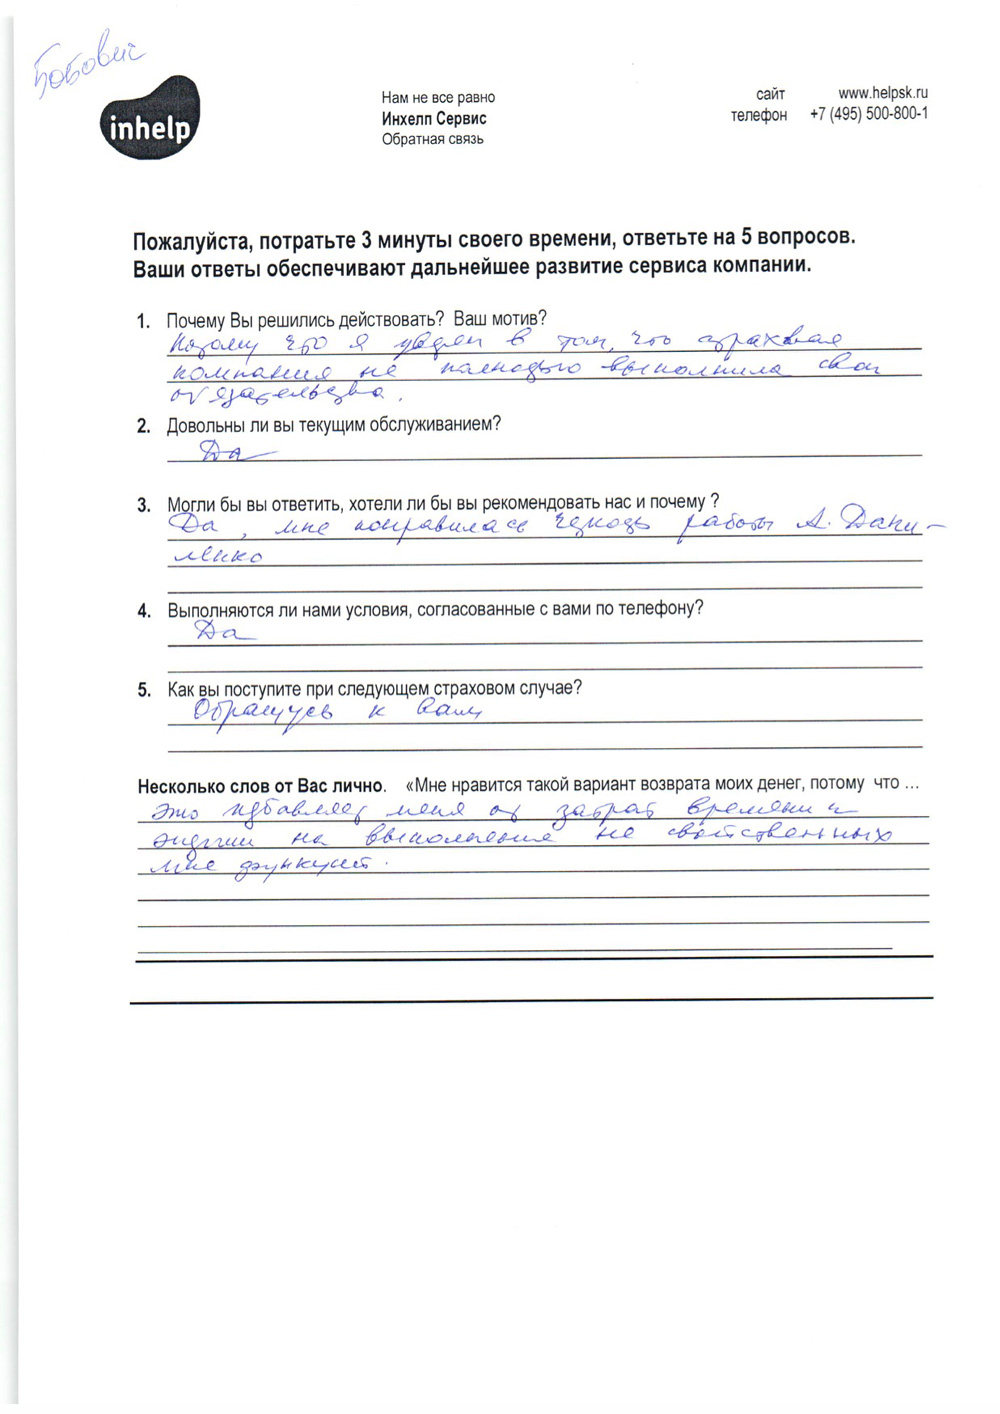 Бобович
inhelp
Нам не все равно
Инхелп Сервис
Обратная связь
сайт www.helpsk.ru
телефон +7 (495) 500-800-1
Пожалуйста, потратьте 3 минуты своего времени, ответьте на 5 вопросов.
Ваши ответы обеспечивают дальнейшее развитие сервиса компании.
1. Почему Вы решились действовать? Ваш мотив?
Потому что я уверен в том, что страховая
компания не полностью выполнила свои
обязательства.
2. Довольны ли вы текущим обслуживанием?
Да
3. Могли бы вы ответить, хотели ли бы вы рекомендовать нас и почему ?
Да, мне понравилась четкость работы А. Дани-
ленко
4. Выполняются ли нами условия, согласованные с вами по телефону?
Да
5. Как вы поступите при следующем страховом случае?
Обращусь к вам
Несколько слов от Вас лично. «Мне нравится такой вариант возврата моих денег, потому что ...
это избавляет меня от затрат времени и
энергии на выполнение не свойственных
мне функций.